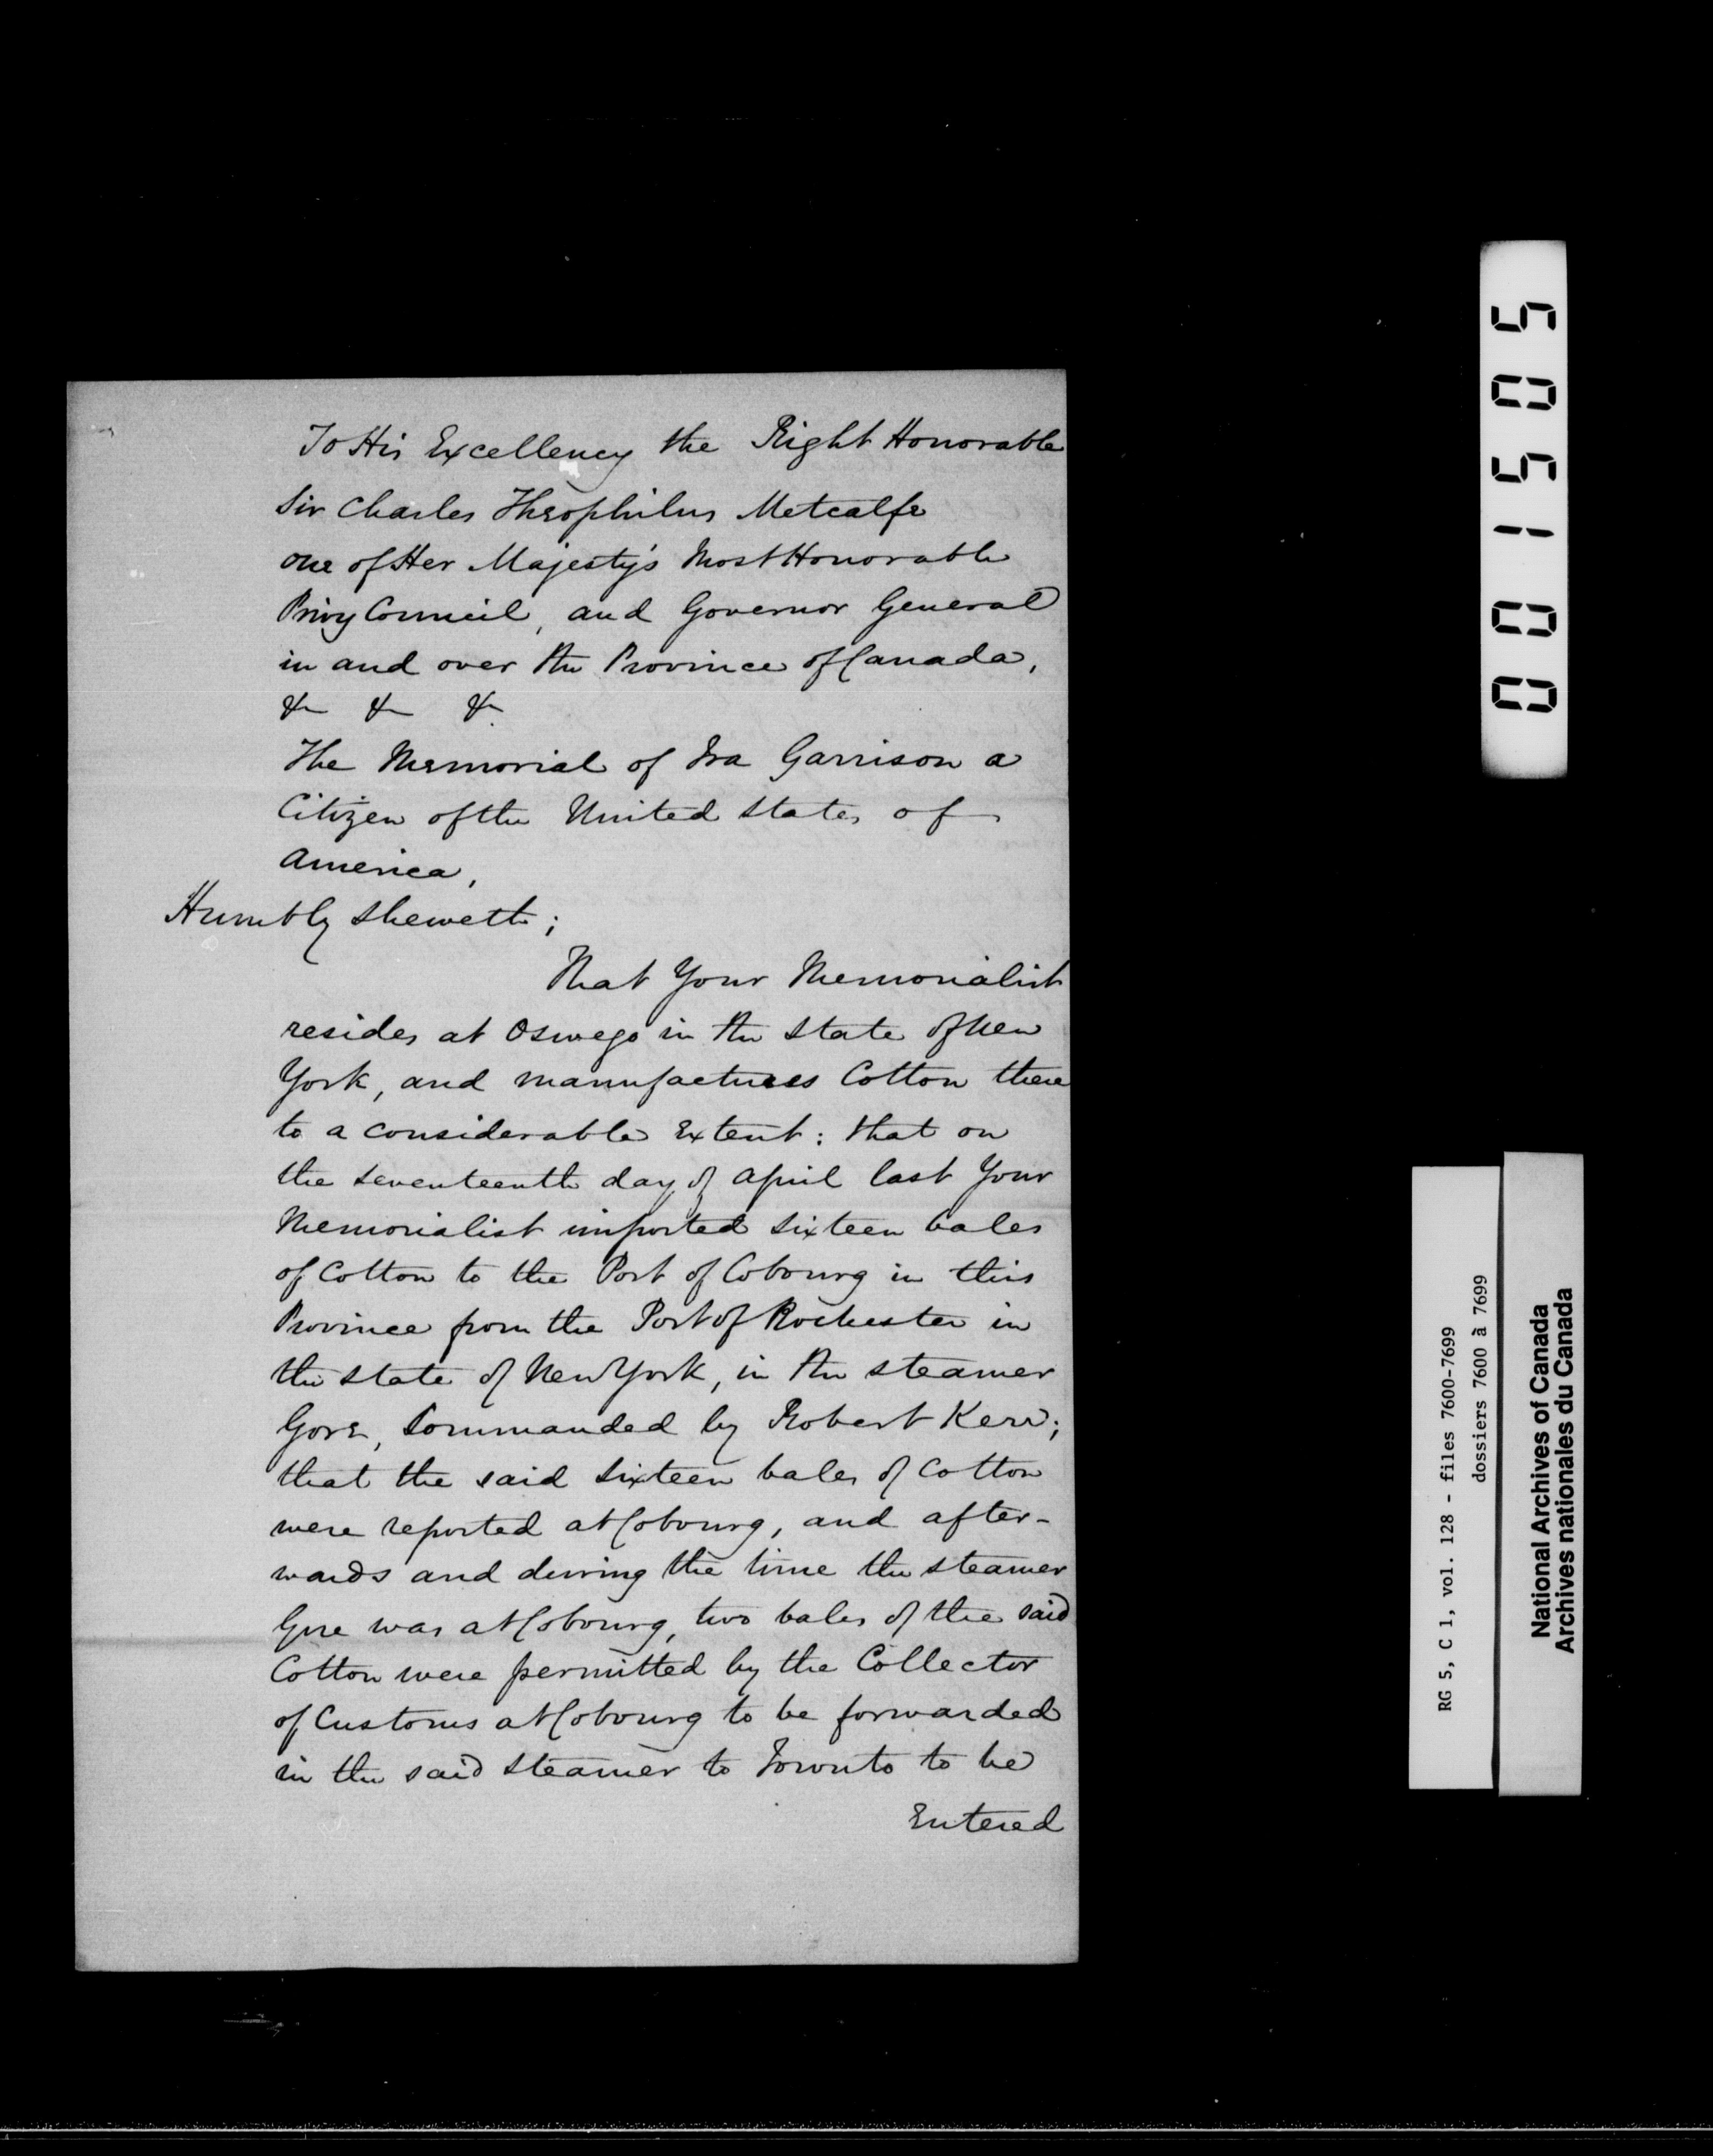 To His Excellency the Right Honorable
Sir Charles Theophilus Metcalfe
one of Her Majesty's Most Honorable
Privy Council, and Governor General
in and over the Province of Canada,
&c &c &c
The Memorial of Ira Garrison a
Citizen of the United States of
America,
Humbly sheweth;
That Your Memorialist
resides at Oswego in the State of New
York, and manufactures Cotton there
to a considerable Extent: that on
the seventeenth day of April last Your
Memorialist imported sixteen bales
of Cotton to the Port of Cobourg in this
Province from the Port of Rochester in
the State of New York, in the steamer
Gore, Commanded by Robert Kerr;
that the said sixteen bales of Cotton
were reported at Cobourg, and after-
wards and during the time the steamer
Gore was at Cobourg, two bales of the said
Cotton were permitted by the Collector
of Customs at Cobourg to be forwarded
in the said steamer to Toronto to be
Entered
001505
RG 5, C 1, vol. 128 - files 7600-7699
dossiers 7600 à 7699
National Archives of Canada
Archives nationales du Canada